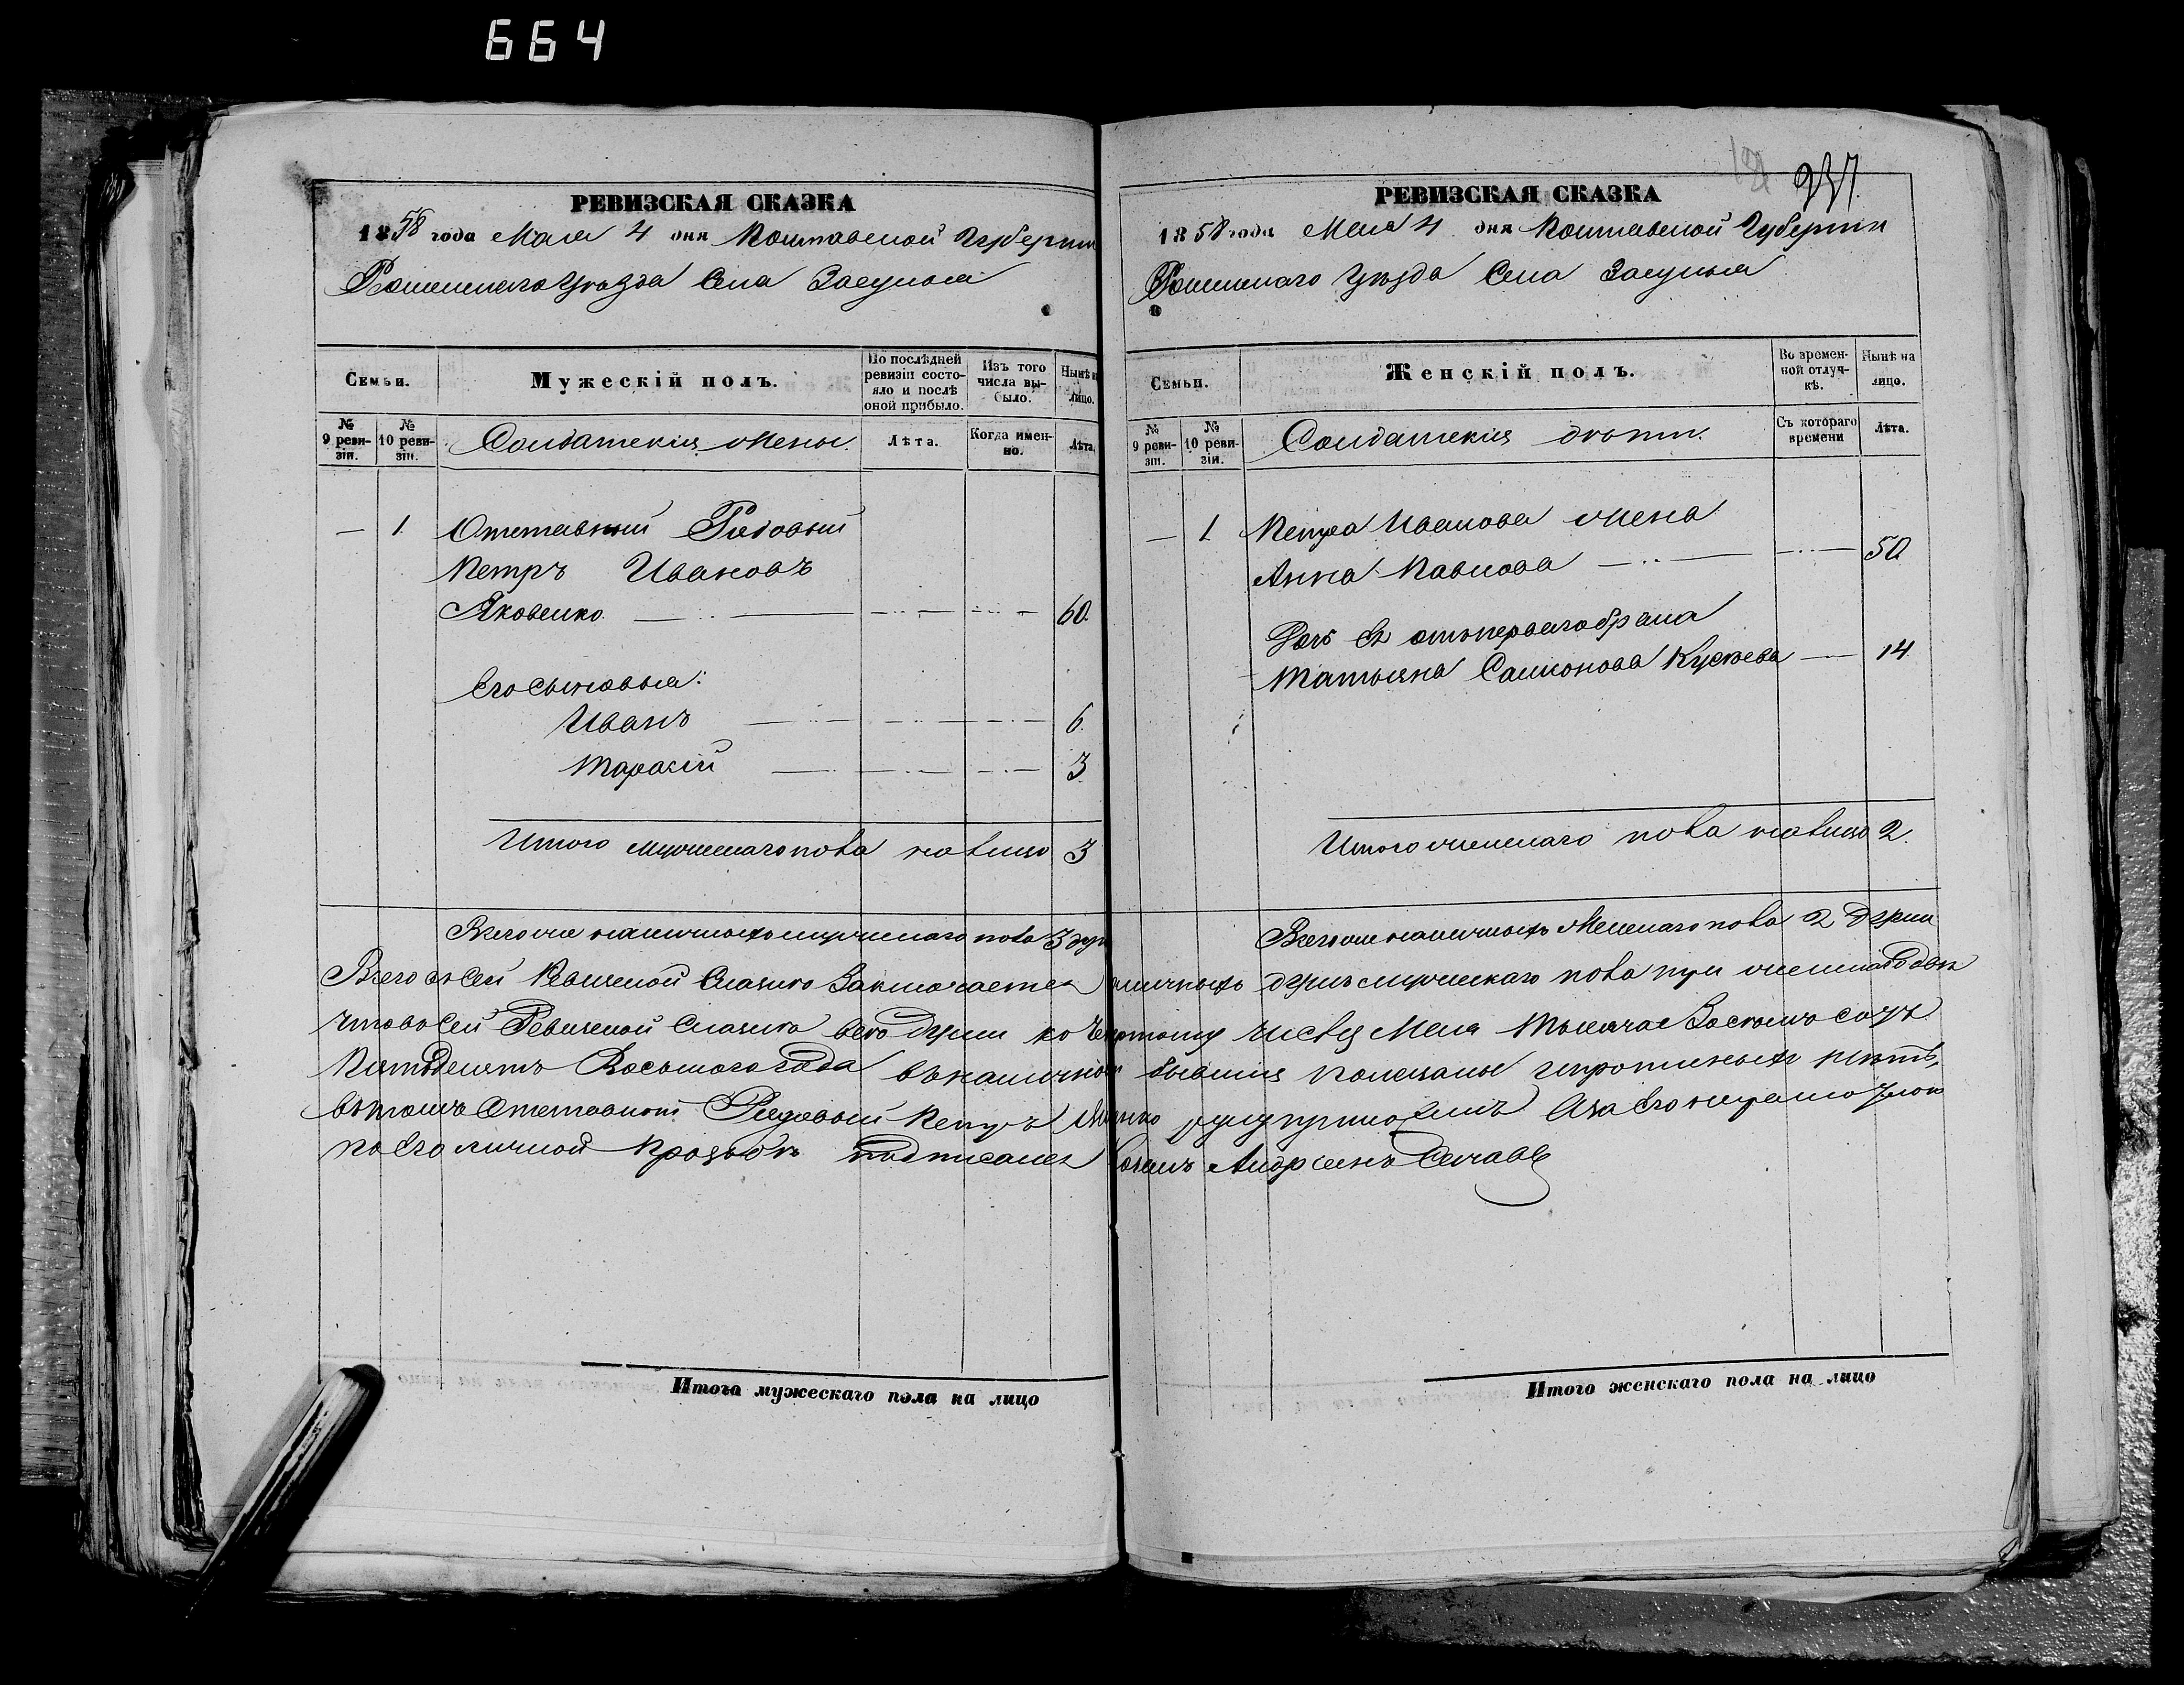 664
РЕВИЗСКАЯ СКАЗКА
1858 года Мая 4 дня Полтавской Губерніи
Роменскаго Уѣзда Села Засулья
Семьи.
Мужескій полъ.
По послѣдней ревизіи состояло и послѣ оной прибыло.
Изъ того числа выбыло.
Нынѣ на лицо.
№ 9 ревизіи.
№ 10 ревизіи.
Солдатскія жены.
Лѣта.
Когда именно.
Лѣта
— 1. Отставный Рядовый
Петръ Ивановъ
Яковенко 60.
Его сыновья:
Иванъ 6.
Тарасій 3.
Итого мужескаго пола на лицо 3
Всего же наличныхъ мужескаго пола 3 душ
Всего въ сей Ревизской Сказке Заключается
что во сей Ревизской Сказке все души ко
Пятдесятъ Восьмого года въ наличности
въ томъ Отставной Рядовый Петръ
по его личной прозьбѣ подписался
Итого мужескаго пола на лицо
237.
РЕВИЗСКАЯ СКАЗКА
1858 года Мая 4 дня Полтавской Губерніи
Роменскаго Уѣзда Села Засулья
Семьи.
Женскій полъ.
Во временной отлучкѣ.
Нынѣ на лицо.
№ 9 ревизіи.
№ 10 ревизіи.
Солдатскія дѣти.
Съ котораго времени
Лѣта.
— 1 Петра Иванова жена
Анна Павлова 50
Дочь Ея отъ перваго брака
Татьяна 14
Итого женскаго пола на лицо 2.
Всего же наличныхъ Женскаго пола 2 души
наличныхъ душъ мужескаго пола три женскаго две
Четвертому числу Мая Тысяча Восемьсотъ
бывшія показаны и пропиныхъ нѣтъ,
руку приложилъ А за Его неграмотного
Андріянъ
Итого женскаго пола на лицо